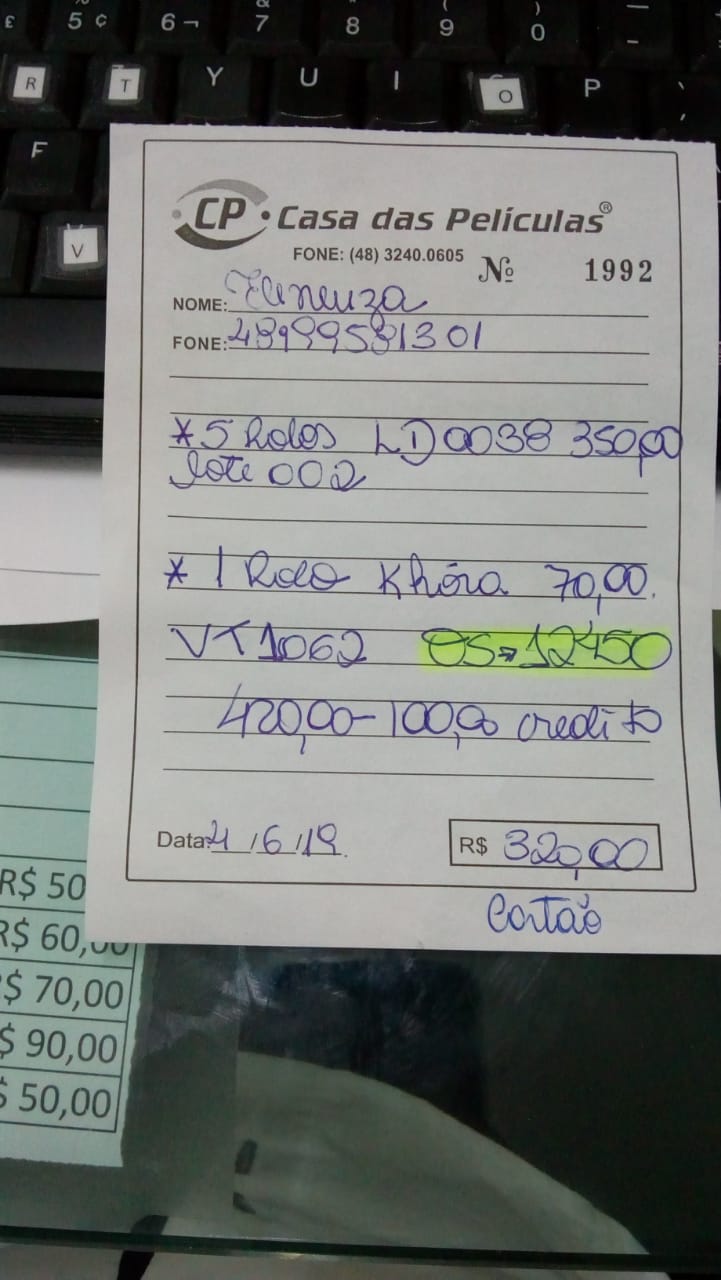 £ 5 ¢ 6 ¬ & 7 8 ( 9 ) 0 _ -
R T Y U I O P
F
V
CP Casa das Películas ®
FONE: (48) 3240.0605 Nº 1992
NOME:
FONE: 48999581301
* 5 Rolos LD0038 350,00
lote 002
* 1 Rolo Khóra 70,00.
VT1062 OS→12450
420,00-100,00 credito
Data: 4/6/19. R$ 320,00
Cartão
R$ 50
R$ 60,00
$ 70,00
$ 90,00
$ 50,00